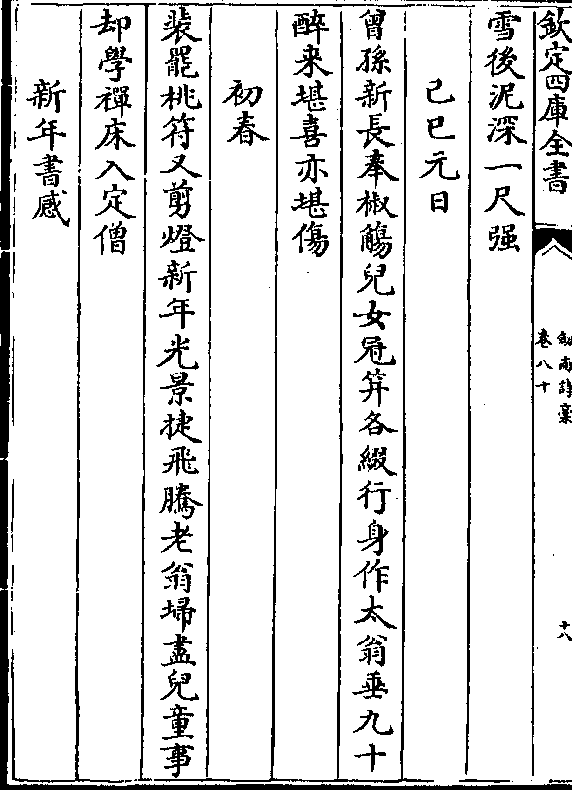 欽定四庫全書
劒南詩稾
卷八十
十八
雪後泥深一尺强
己巳元日
曾孫新長奉椒觴兒女冠笄各綴行身作太翁垂九十
醉来堪喜亦堪傷
初春
裝罷桃符又剪燈新年光景捷飛騰老翁埽盡兒童事
却學禪床入定僧
新年書感